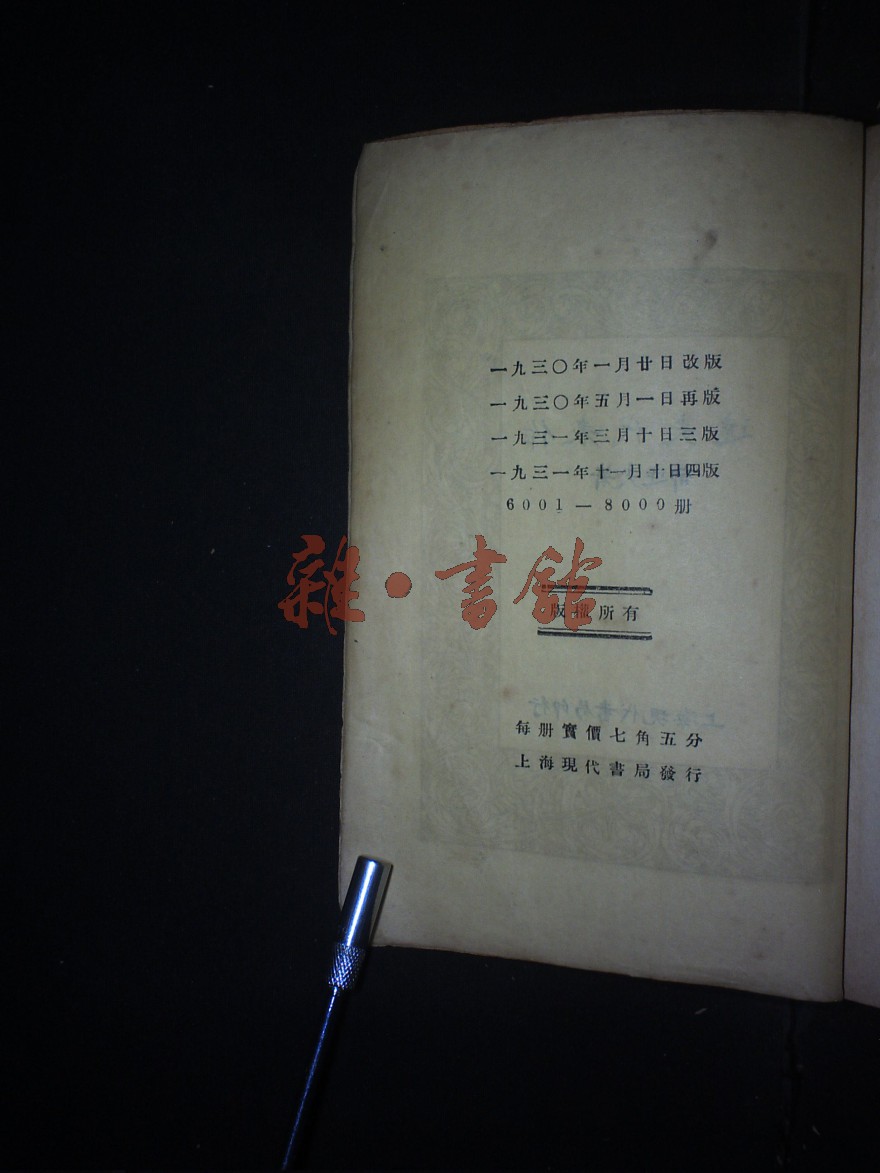 一九三〇年一月廿日改版
一九三〇年五月一日再版
一九三一年三月十日三版
一九三一年十一月十日四版
6001－8000册
雜·書館
版權所有
每册實價七角五分
上海現代書局發行